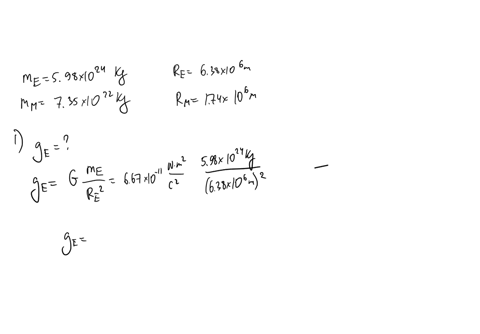 mE = 5.98×10²⁴ Kg RE = 6.38×10⁶ m
mM = 7.35×10²² Kg RM = 1.74×10⁶ m
1) gE = ?
gE = G mE/RE² = 6.67×10⁻¹¹ N·m²/C² 5.98×10²⁴ Kg/(6.38×10⁶ m)² —
gE =